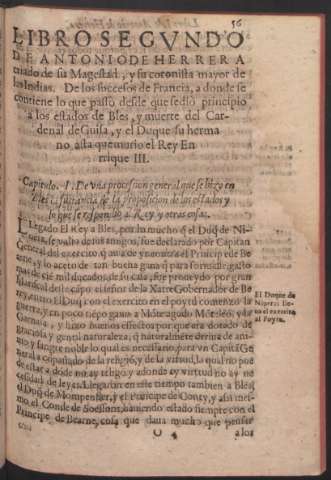 56
LIBRO SEGVNDO
DE ANTONIO DE HERRERA
criado de su Magestad, y su coronista mayor de
las Indias. De los sucessos de Francia, a donde se
contiene lo que passò, desde que se dio principio
a los estados de Bles, y muerte del Car-
denal de Guisa, y el Duque su herma
no, asta que murio el Rey En
rrique III.
Capitulo. I. De vna procession general que se hizo en
Bles: la sustancia de la proposicion de los estados y
lo que se respondio al Rey y otras cosas.
LLegado El Rey a Bles, por mucho que el Duq̃ de Ni-
uers, se valio de sus amigos, fue declarado por Capitan
General del exercito que auia de yr contra el Principe de Bear
ne, y lo aceto de tan buena gana
mas de seis mil ducados de su casa, fue proueydo por gran
del cabo el señor de la Xatre Gouernador de Ber
ry, entro El Duq̃ con el exercito en el poytù comenzò la
guerra, y en poco tiẽpo gano a Mõteagudo
y hizo buenos effectos por que era dotado de
graciosa y gentil naturaleza,
no y sangre noble lo qual es necessario para vn Capitã Ge
neral acompañado de la religiõ, y de la virtud, la qual no pue
de estar a donde no ay religo y adonde ay virtud no ay ne
cessidad de leyes. Llegaron en este tiempo tambien a Bles,
el Duq̃ de Mompensier, y el Principe de Conty, y assi mes-
mo el Conde de Soessons, hauiendo estado siempre con el
Principe de Bearne, cosa que daua mucho que pensar
a los
El Duque de
Niuers lle-
ua el exercito
al Poytu.